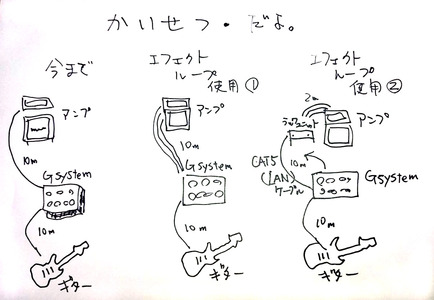 かいせつ・だよ。
今まで
アンプ
10m
Gsystem
10m
ギター
エフェクト
ループ
使用①
アンプ
10m
Gsystem
10m
ギター
エフェクト
ループ
使用②
2m
アンプ
CAT5
(LAN)
ケーブル
10m
Gsystem
10m
ギター